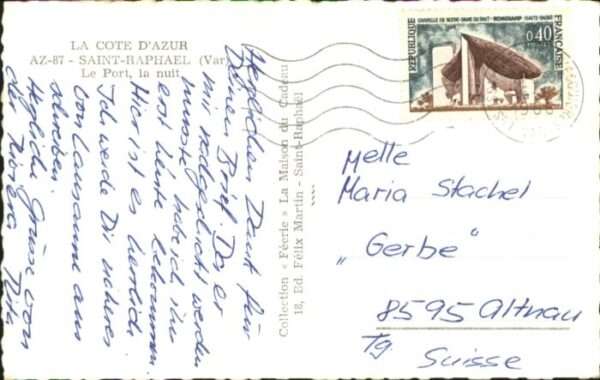 LA COTE D'AZUR
AZ-87 - SAINT-RAPHAEL (Var)
Le Port, la nuit
Herzlichen Dank für
Deinen Brief. Da er
mir nachgeschickt werden
musste habe ich ihn
erst heute bekommen.
Hier ist es herrlich.
Ich werde Dir näheres
von Lausanne aus
schreiben.
Herzliche Grüsse von
der Riviera
Collection « Féerie » La Maison du Cadeau
18, Ed. Félix Martin - Saint-Raphaël
CHAPELLE DE NOTRE-DAME DU HAUT - RONCHAMP (HAUTE-SAONE)
RÉPUBLIQUE FRANÇAISE
0,40
Melle
Maria Stachel
„Gerbe"
8595 Altnau
Tg Suisse